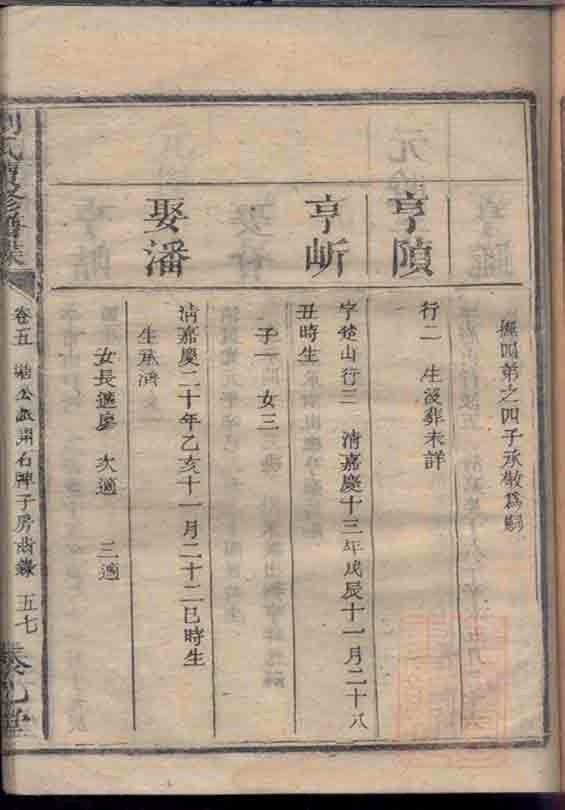 撫四弟之四子承敬爲嗣
亨隫
行二 生沒葬未詳
亨㟁
字楚山行三 清嘉慶十三年戊辰十一月二十八
丑時生
子一 女三
娶潘
清嘉慶二十年乙亥十一月二十二巳時生
生承濟
女長適廖 次適 三適
卷五 公派開石牌子房齒錄 五七